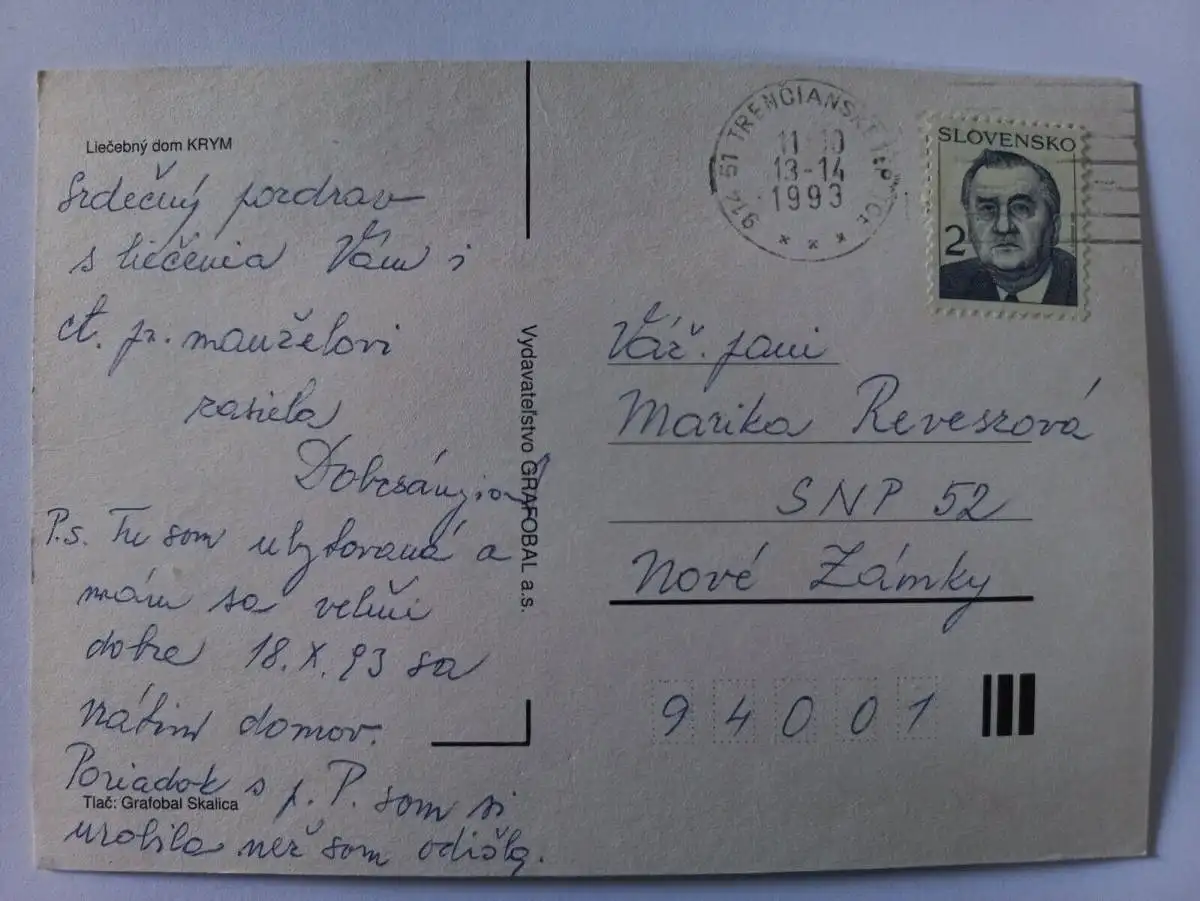 Liečebný dom KRYM
Srdečný pozdrav
s liečenia Vám i
ct. p. manželovi
zasiela
P.s. Tu som ubytovaná a
mám sa velmi
dobre 18.X.93 sa
vrátim domov.
Poriadok s p. P. som si
urobila než som odišla.
Tlač: Grafobal Skalica
Vydavateľstvo GRAFOBAL a.s.
914 51 TRENČIANSKE TEPLICE
11.10
13-14
1993
* * *
SLOVENSKO
2
Váž. pani
Marika Reveszová
SNP 52
Nové Zámky
94001